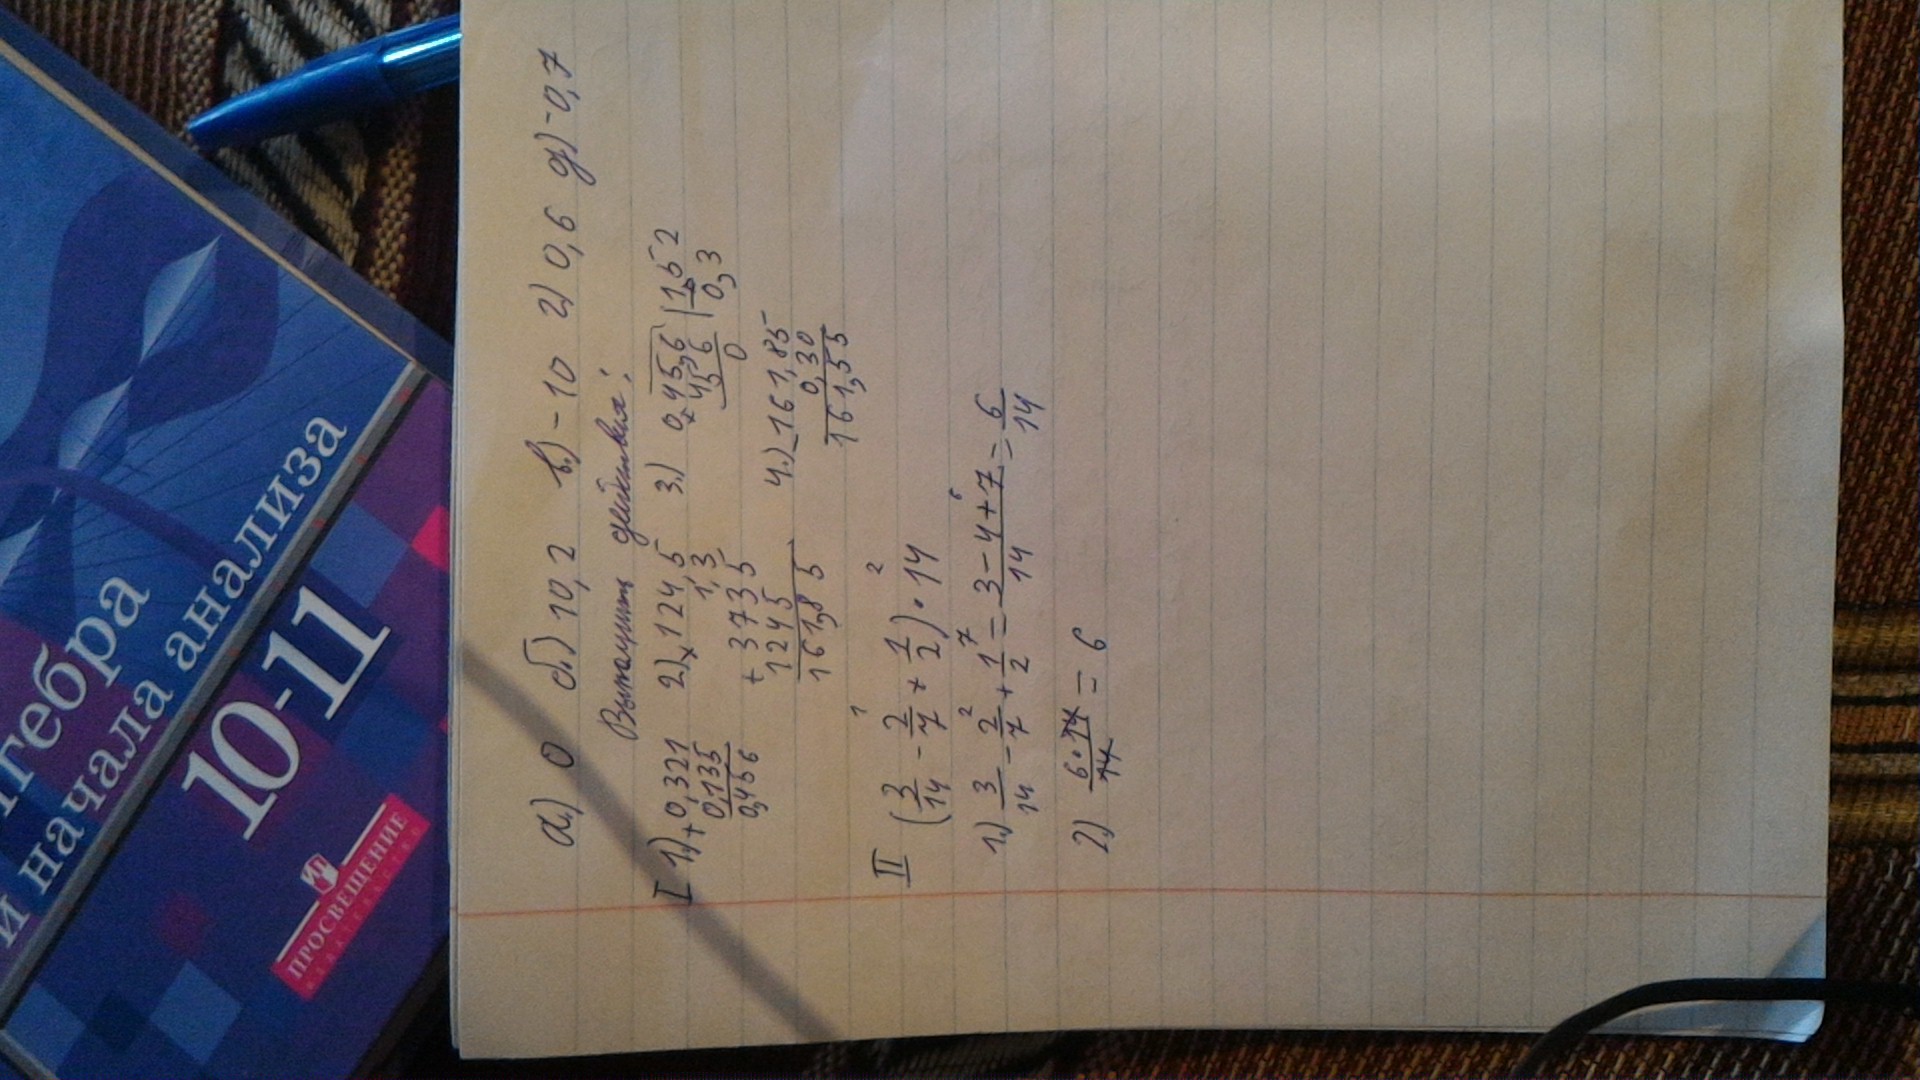 гебра
и начала анализа
10-11
ПРОСВЕЩЕНИЕ
ИЗДАТЕЛЬСТВО
а.) 0 б.) 10,2 в.) -10 г) 0,6 д) -0,7
Выполнить действия:
I 1.) + 0,321
0,135
0,456
2.) × 124,5
1,3
+ 3735
1245
161,85
3.) 0,45,6 | 1,52
456 0,3
0
4.) - 161,85
0,30
161,55
II (3/14 - 2/7 + 1/2) · 14
1 2
1.) 3/14 - 2/7 + 1/2 = 3-4+7/14 = 6/14
2) 6·14/14 = 6